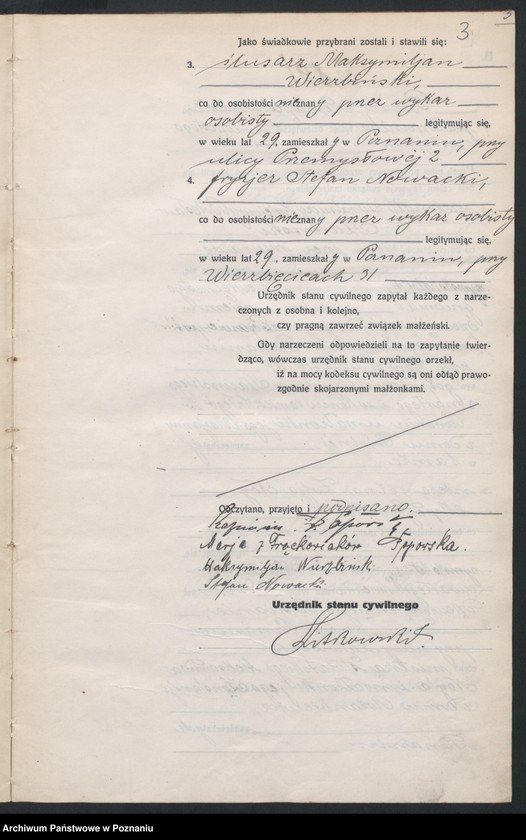 3
5
Jako świadkowie przybrani zostali i stawili się:
3. ślusarz Maksymiljan
Wierzbiński,
co do osobistości nieznany przez wykaz
osobisty legitymując się,
w wieku lat 29, zamieszkały w Poznaniu, przy
ulicy Przemysłowej 2
4. fryzjer Stefan Nowacki,
co do osobistości nieznany przez wykaz osobisty
legitymując się,
w wieku lat 29, zamieszkały w Poznaniu, przy
Wierzbięcicach 31
Urzędnik stanu cywilnego zapytał każdego z narze-
czonych z osobna i kolejno,
czy pragną zawrzeć związek małżeński.
Gdy narzeczeni odpowiedzieli na to zapytanie twier-
dząco, wówczas urzędnik stanu cywilnego orzekł,
iż na mocy kodeksu cywilnego są oni odtąd prawo-
zgodnie skojarzonymi małżonkami.
Odczytano, przyjęto i podpisano.
Marja z Frąckowiaków Toporska.
Maksymiljan Wierzbiński
Stefan Nowacki
Urzędnik stanu cywilnego
Archiwum Państwowe w Poznaniu